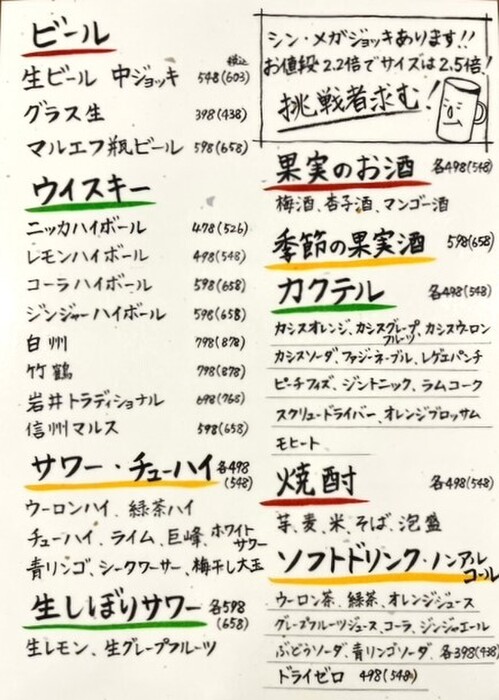 ビール
税込
生ビール 中ジョッキ 548(603)
グラス生 398(438)
マルエフ瓶ビール 598(658)
ウイスキー
ニッカハイボール 478(526)
レモンハイボール 498(548)
コーラハイボール 598(658)
ジンジャーハイボール 598(658)
白州 798(878)
竹鶴 798(878)
岩井トラディショナル 698(768)
信州マルス 598(658)
サワー・チューハイ 各498
(548)
ウーロンハイ、緑茶ハイ
チューハイ、ライム、巨峰、ホワイト
サワー
青リンゴ、シークワーサー、梅干し大玉
生しぼりサワー 各598
(658)
生レモン、生グレープフルーツ
シン・メガジョッキあります!!
お値段2.2倍でサイズは2.5倍!
挑戦者求む!
果実のお酒 各498(548)
梅酒、杏子酒、マンゴー酒
季節の果実酒 598(658)
カクテル 各498(548)
カシスオレンジ、カシスグレープ、カシスウーロン
フルーツ
カシスソーダ、ファジーネーブル、レゲエパンチ
ピーチフィズ、ジントニック、ラムコーク
スクリュードライバー、オレンジブロッサム
モヒート
焼酎 各498(548)
芋、麦、米、そば、泡盛
ソフトドリンク・ノンアル
コール
ウーロン茶、緑茶、オレンジジュース
グレープフルーツジュース、コーラ、ジンジャエール
ぶどうソーダ、青リンゴソーダ、各398(438)
ドライゼロ 498(548)